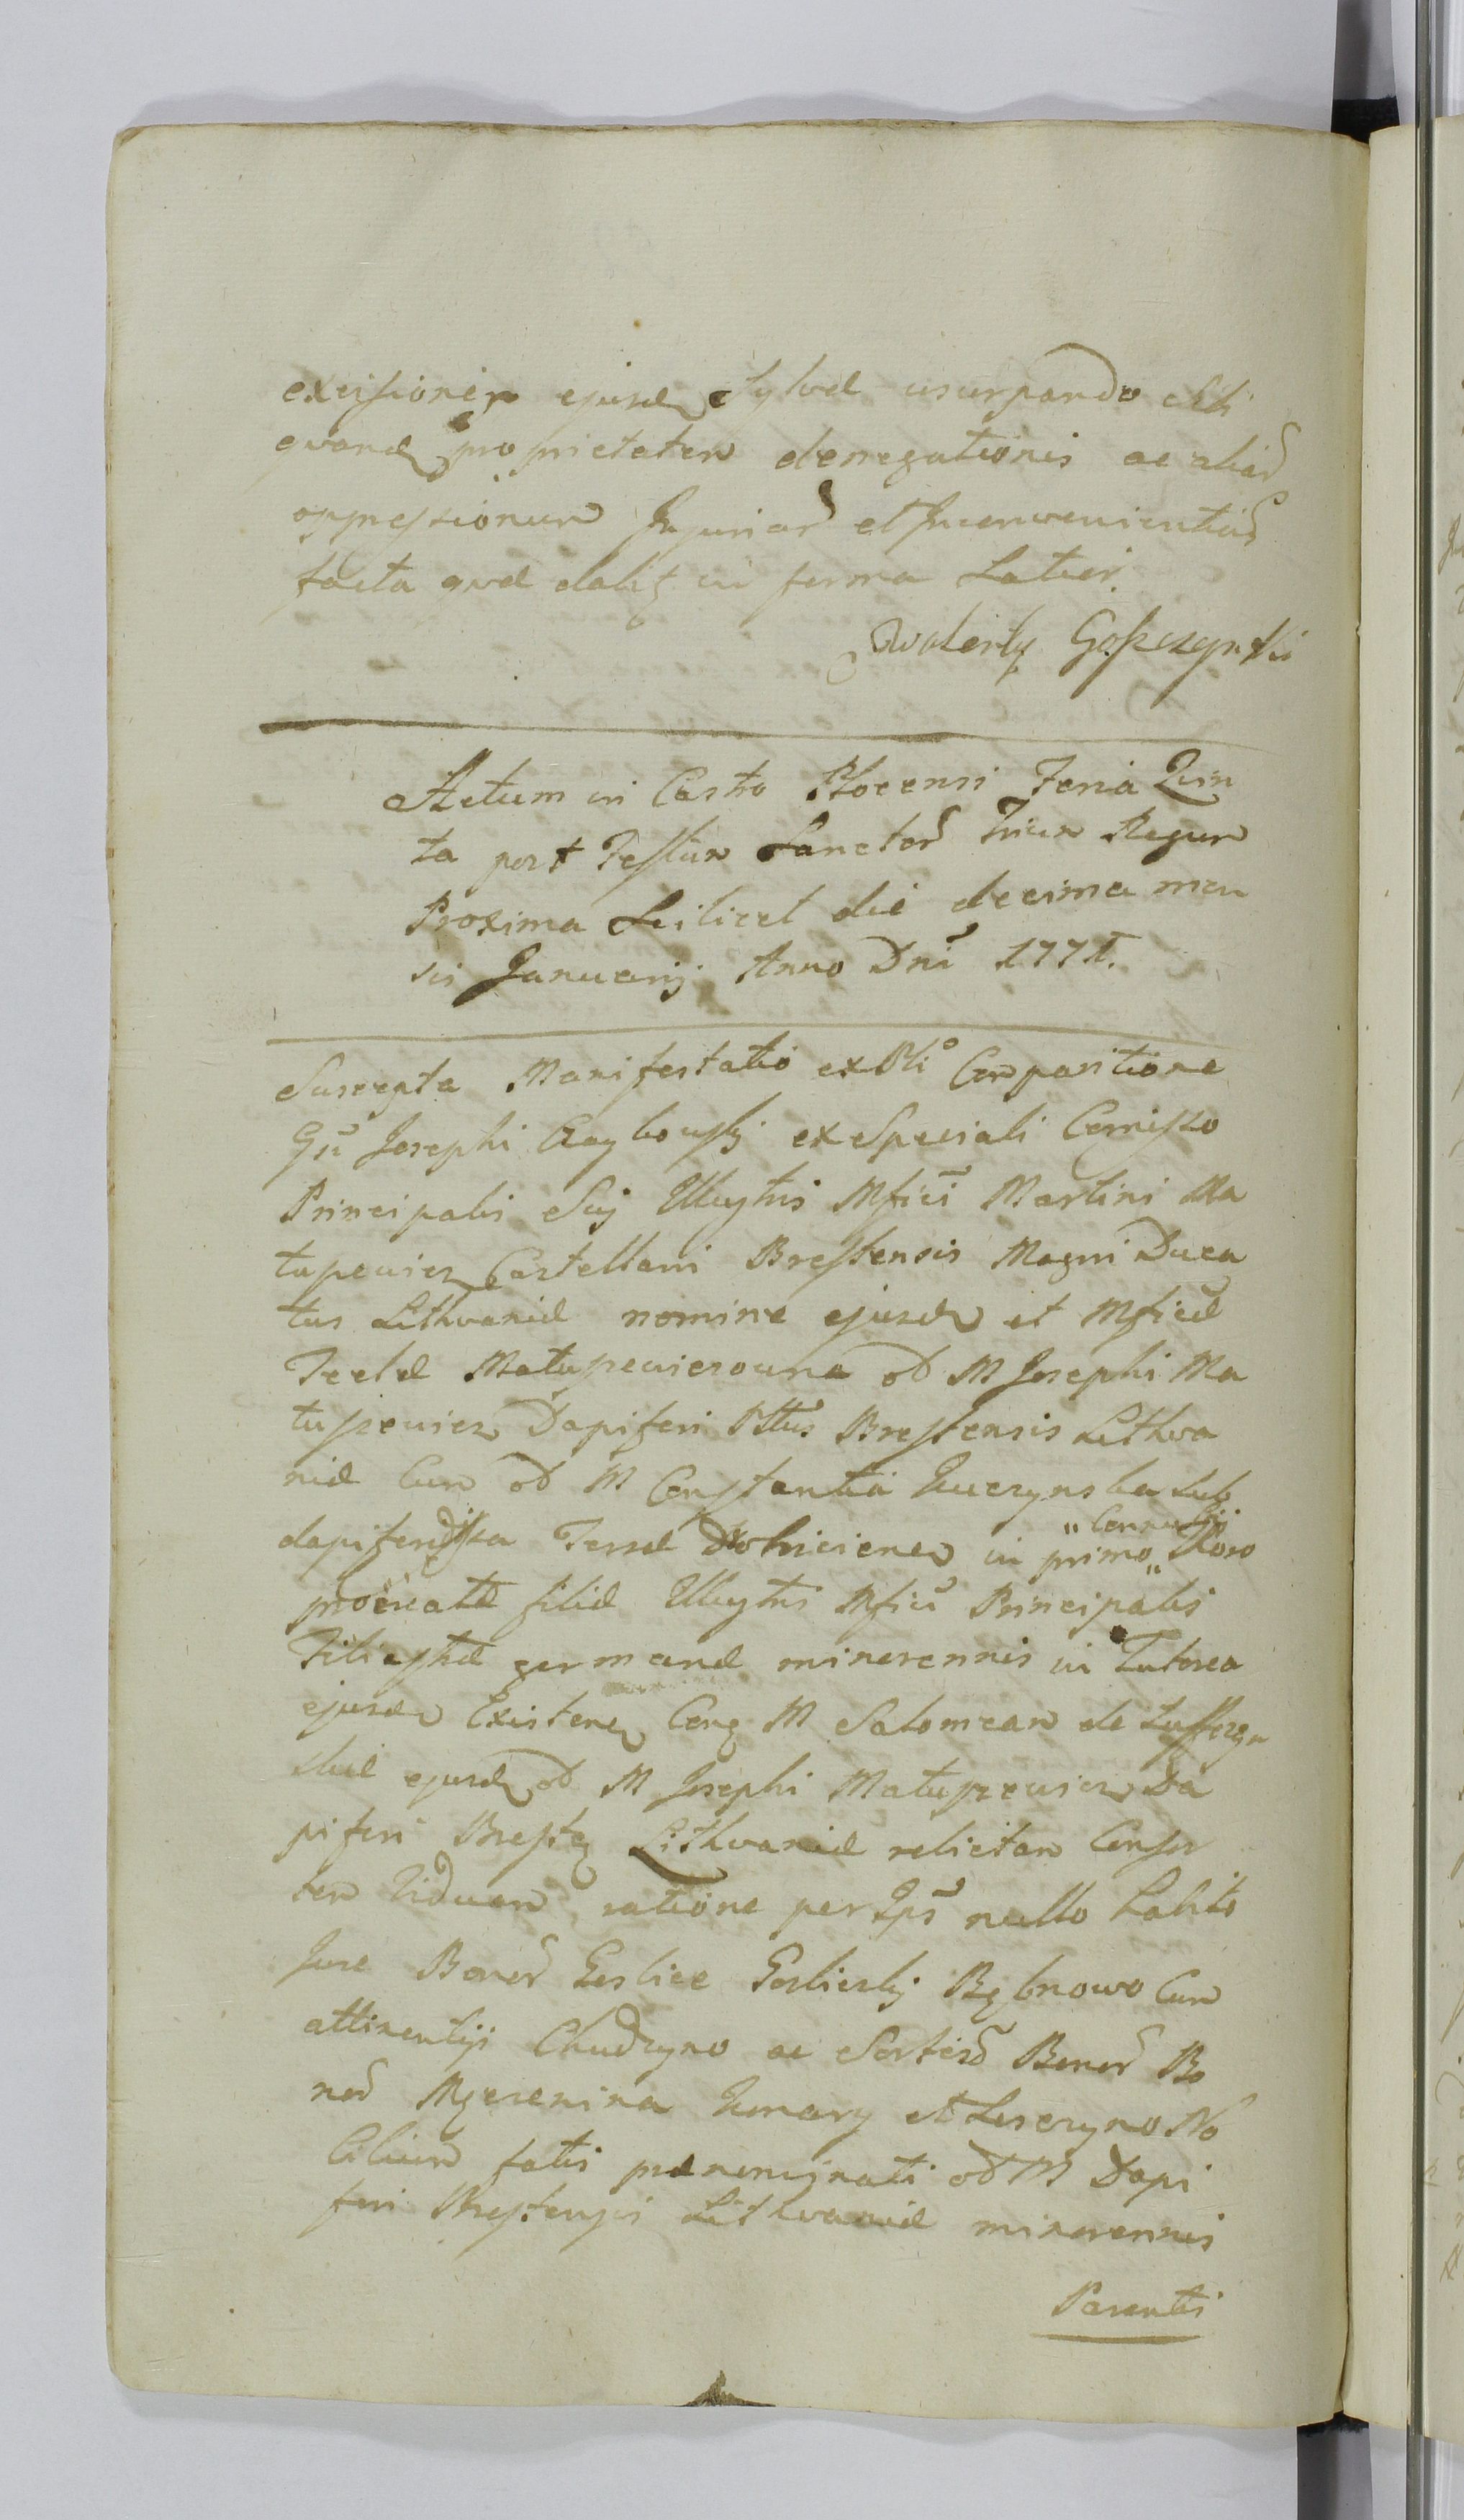 excisionem ejusd Sylvæ usurpando sibi
quand proprietatem denegationis ac aliar
oppressionum Injuriar et Inconvenientiar
facta quæ talis in forma Latior
Walenty Goszczynski
Actum in Castro Plocensi Feria Quin
ta post Festum Sanctor Trium Regum
Proxima Scilicet die decima men
sis Januarij Anno Dni 1771.
Suscepta Manifestatio ex Comparitione
Gsi Josephi ex Speciali Comisso
Principalis Suj Illustris Mfici Martini Ma
tuszewicz Castellani Brestensis Magni Duca
tus Lithvaniæ nomine ejusd et Mficæ
Teclæ Matuszewiczowna od M Josephi Ma
tuszewicz Dapiferi Plttus Brestensis Lithva
niæ cum od M Constantia Kuczynska Sub
dapiferdzsza Terræ Drohiciens in primo „Connubij„ Thoro
procreatæ filiæ Illustris Mfici Principalis
Filiastræ germanæ minorennis in Tutorea
ejusd Existens Cong M Salomeam de
skie ejusd od M Josephi Matuszewicz Da
piferi Brestg Lithvaniæ relictam Consor
tem Viduam, ratione per Ips nullo habito
Jure Bonor Goslice Goslicky Bębnowo Cum
attinentijs Chudzyno ac Sortis Bonor Bo
nor Mzerenina Komary et Leserzyno No
bilium fatis prænominati od M Dapi
feri Brestensis Lithvaniæ minorennis
Parentis